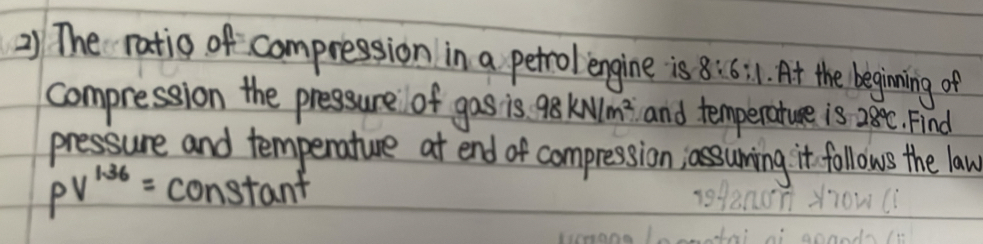 2) The ratio of compression in a petrol engine is 8:6:1. At the beginning of
compression the pressure of gas is 98 kN/m² and temperature is 28°C. Find
pressure and temperature at end of compression, assuming it follows the law
PV^1.36 = constant